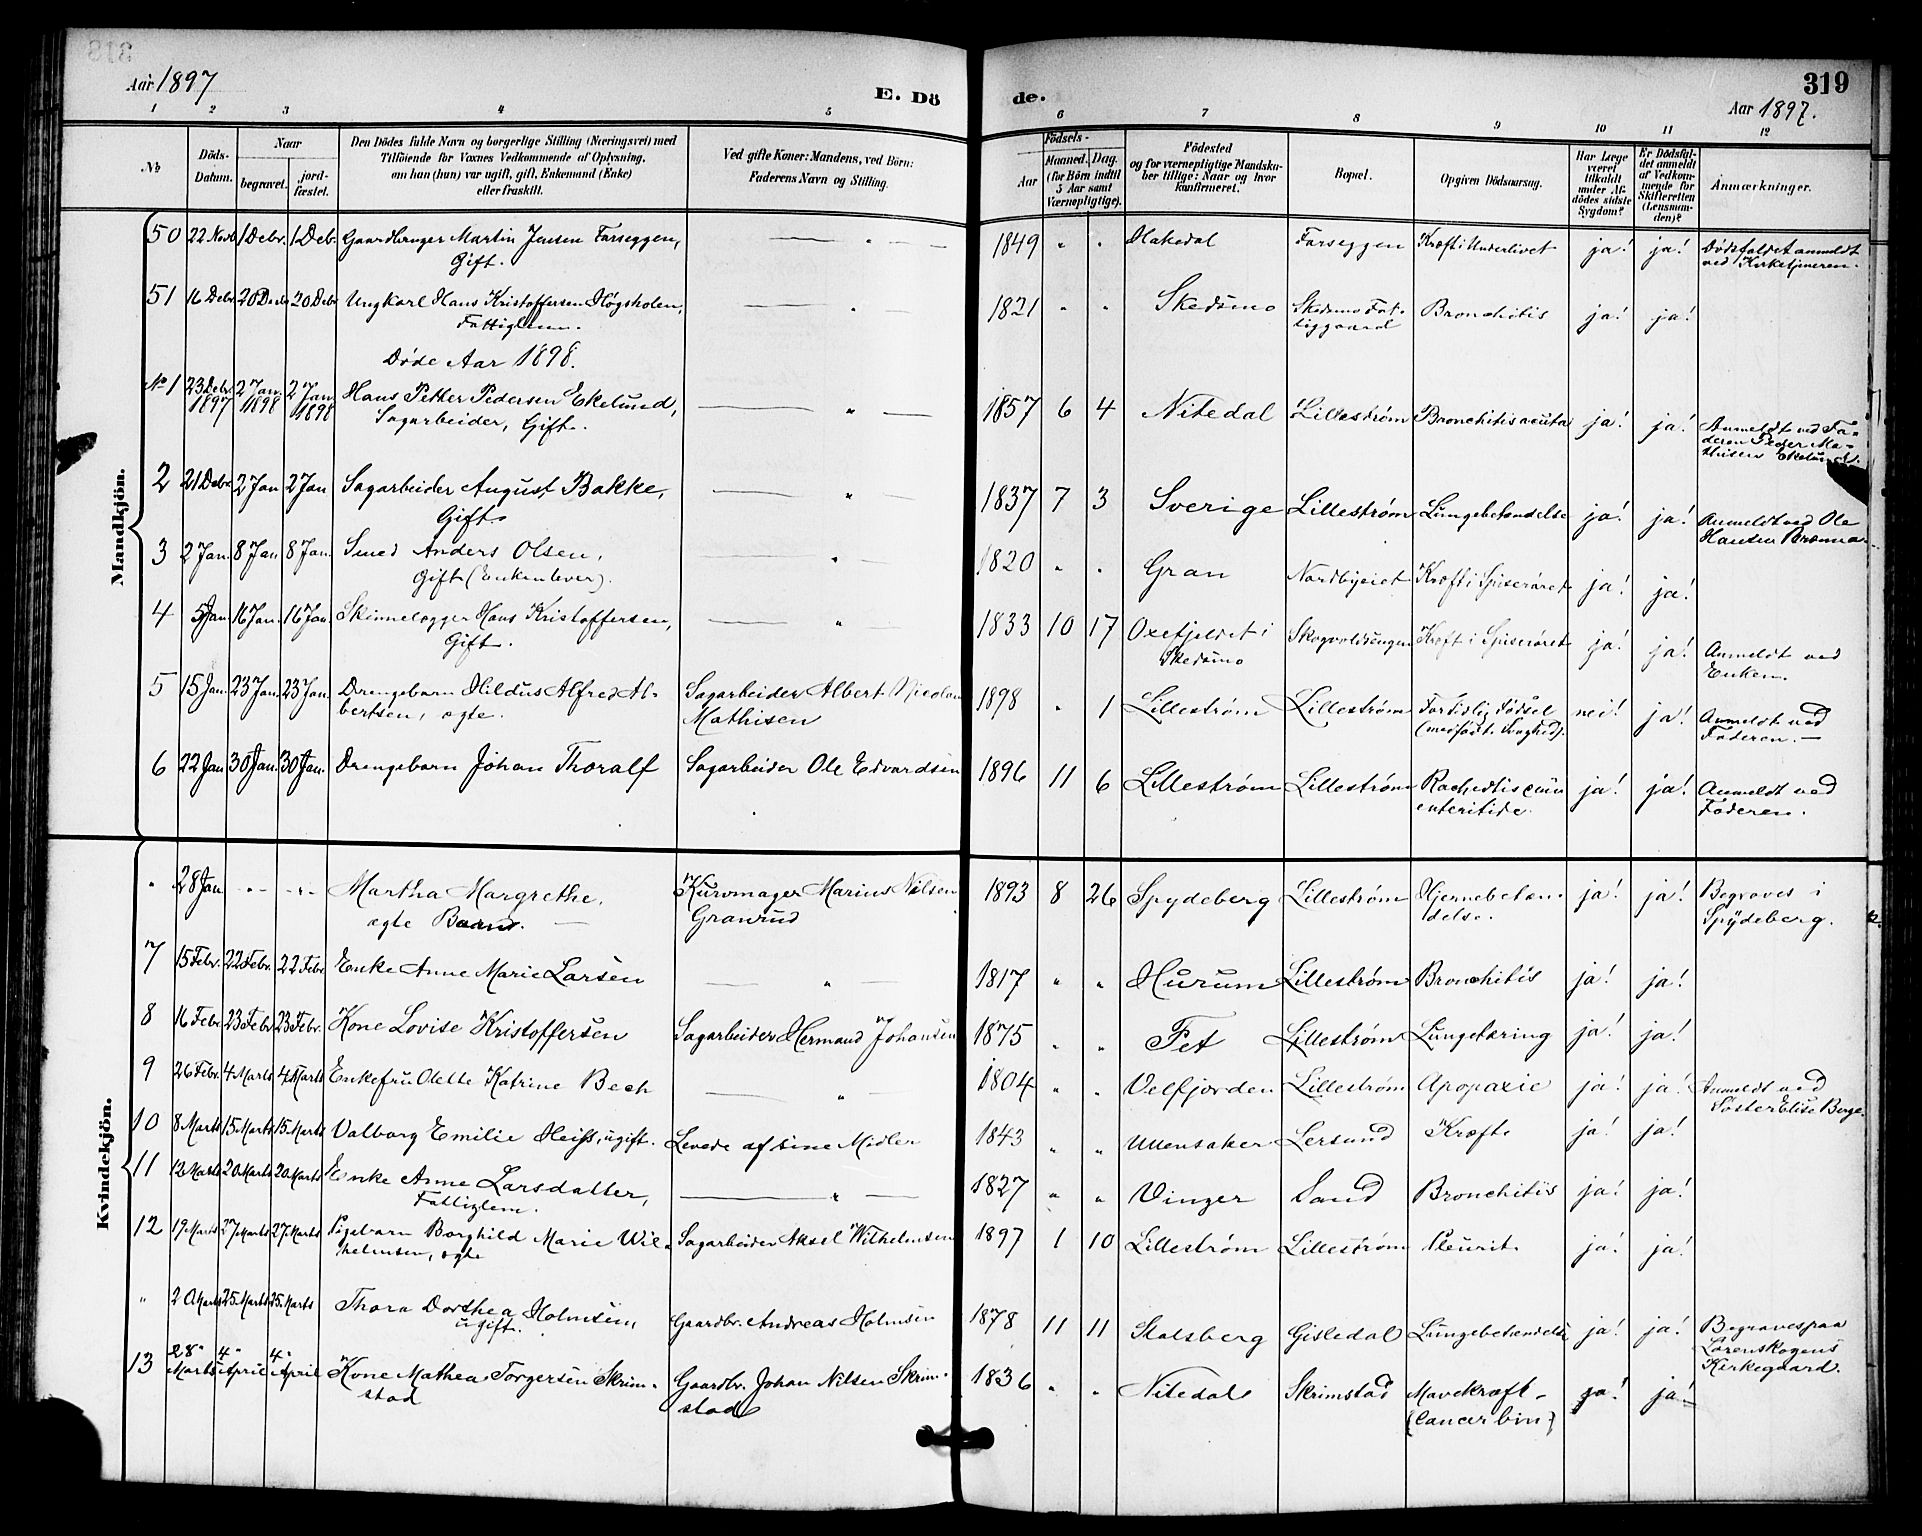 319
Aar 1897
E. Dö
de.
Aar 1897.
1 2 3 4 5 6 7 8 9 10 11 12
No
Döds-
Datum.
Naar
begravet.
jord-
fæstet.
Den Dödes fulde Navn og borgerlige Stilling (Næringsvei) med
Tilföiende for Voxnes Vedkommende af Oplysning,
om han (hun) var ugift, gift, Enkemand (Enke)
eller fraskilt.
Ved gifte Koner: Mandens, ved Börn:
Faderens Navn og Stilling.
Födsels-
Aar
Maaned. Dag.
(for Börn indtil
5 Aar samt
Værnepligtige).
Födested
og for værnepligtige Mandska-
ber tillige: Naar og hvor
konfirmeret.
Bopæl.
Opgiven Dödsaarsag.
Har Læge
været
tilkaldt
under Af-
dödes sidste
Sygdom?
Er Dödsfal-
det anmeldt
af Vedkom-
mende for
Skifteretten
(Lensman-
den)?
Anmærkninger.
Mandkjön.
50 22 Novb 1 Debr. 1 Deb. Gaardbruger Martin Jensen Farseggen, — " — 1849 " " Hakedal Farseggen Kræft i Underlivet ja! ja! Dödsfaldet anmeldt
Gift. ved Kirketjeneren.
51 16 Debr 20 Debr 20 Debr Ungkarl Hans Kristoffersen Høgsholen, — " — 1821 " " Skedsmo Skedsmo Fat- Bronchitis ja! ja!
Fattiglem. tiggaard
Døde Aar 1898.
No 1 23 Debr. 2 Jan. 2 Jan Hans Petter Pedersen Ekelund, — " — 1857 6 4 Nitedal Lillestrøm Bronchitis acuta ja! ja! Anmeldt ved Fa-
1897 1898 1898 Sagarbeider, Gift. deren Peder Ma-
thisen Ekelund.
2 21 Debr 2 Jan 2 Jan Sagarbeider August Bakke, — " — 1837 7 3 Sverige Lillestrøm Lungebetændelse ja! ja! Anmeldt ved Ole
Gift. Hansen
3 2 Jan. 8 Jan 8 Jan. Smed Anders Olsen, — " — 1820 " " Gran Nordbyeiet Kræft i Spiserøret ja! ja!
Gift (Enken lever).
4 5 Jan 16 Jan. 16 Jan. Skinnelægger Hans Kristoffersen, — " — 1833 10 17 Oxefjeldet i Skogvoldsengen Kræft i Spiserøret ja! ja! Anmeldt ved
Gift. Skedsmo Enken.
5 15 Jan. 23 Jan. 23 Jan. Drengebarn Hildus Alfred Al- Sagarbeider Albert Nicolai 1898 " 1 Lillestrøm Lillestrøm For tidlig Fødsel nei! ja! Anmeldt ved
bertsen, ægte. Mathisen (medfødt Svaghed). Faderen. —
6 22 Jan 30 Jan. 30 Jan. Drengebarn Johan Thoralf Sagarbeider Ole Edvardsen 1896 11 6 Lillestrøm Lillestrøm Rachitis cum ja! ja! Anmeldt ved
enteritide. Faderen.
Kvindekjön.
" 28 Jan " " Martha Margrethe, Kurvmager Marius Nilsen 1893 8 26 Spydeberg Lillestrøm Hjernebetæn- ja! ja! Begraves i
ægte Barn. — Granrud delse. Spydeberg.
7 15 Febr. 22 Febr. 22 Febr Enke Anne Marie Larsen — " — 1817 " " Hurum Lillestrøm Bronchitis ja! ja!
8 16 Febr 23 Febr 23 Febr. Kone Lovise Kristoffersen Sagarbeider Hermand Johansen 1875 " " Fet Lillestrøm Lungetæring ja! ja!
9 26 Febr. 4 Marts 4 Marts Enkefru Olette Katrine Bech — " — 1804 " " Velfjorden Lillestrøm Apopaxie ja! ja! Anmeldt ved
Søster Elise Berge.
10 8 Marts 15 Marts 15 Marts Valborg Emilie Heiss, ugift. Levede af sine Midler 1843 " " Ullensaker Lersund Kræft ja! ja!
11 12 Marts 20 Marts 20 Marts Enke Anne Larsdatter, — " — 1827 " " Vinger Sand Bronchitis ja! ja!
Fattiglem.
12 19 Marts 27 Marts 27 Marts Pigebarn Borghild Marie Wil- Sagarbeider Aksel Wilhelmsen 1897 1 10 Lillestrøm Lillestrøm Pleurit. ja! ja!
helmsen, ægte
" 2 Marts 25 Marts 25 Marts Thora Dorthea Holmsen, Gaardbr. Andreas Holmsen 1878 11 11 Stalsberg Gisledal Lungebetændelse ja! ja! Begraves paa
ugift. Lørenskogens
Kirkegaard.
13 28 Marts 4 April 4 April Kone Mathea Torgersen Skrim- Gaardbr. Johan Nilsen Skrim- 1836 " " Nitedal Skrimstad Mavekræft - ja! ja!
stad stad (Cancer bin)